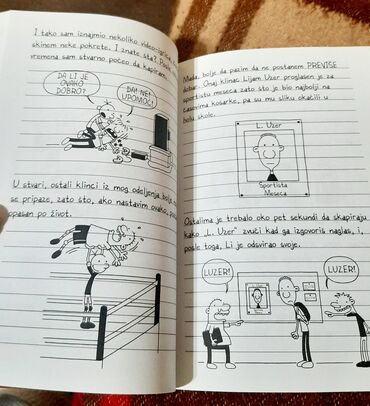 I tako sam iznajmio nekoliko video-igrica,
skinem neke pokrete. I znate šta? Posle
vremena sam stvarno počeo da kapiram.
DA LI JE
OVAKO
DOBRO?
DA! NE!
UPOMOĆ!
U stvari, ostali klinci iz mog odeljenja bolje
se pripaze, zato što, ako nastavim ovako,
opasan po život.
Mada, bolje da pazim da ne postanem PREVIŠE
dobar. Onaj klinac Lijam Uzer proglašen je za
sportistu meseca zato što je bio najbolji na
časovima košarke, pa su mu sliku okačili u
holu škole.
L. Uzer
Sportista
Meseca
Ostalima je trebalo oko pet sekundi da skapiraju
kako „L. Uzer" zvuči kad ga izgovoriš naglas, i,
posle toga, Li je odsvirao svoje.
LUZER!
LUZER!